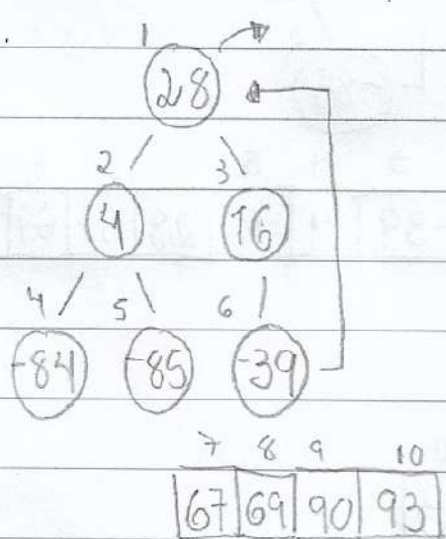 1
28
2 3
4 16
4 5 6
-84 -85 -39
7 8 9 10
67 69 90 93